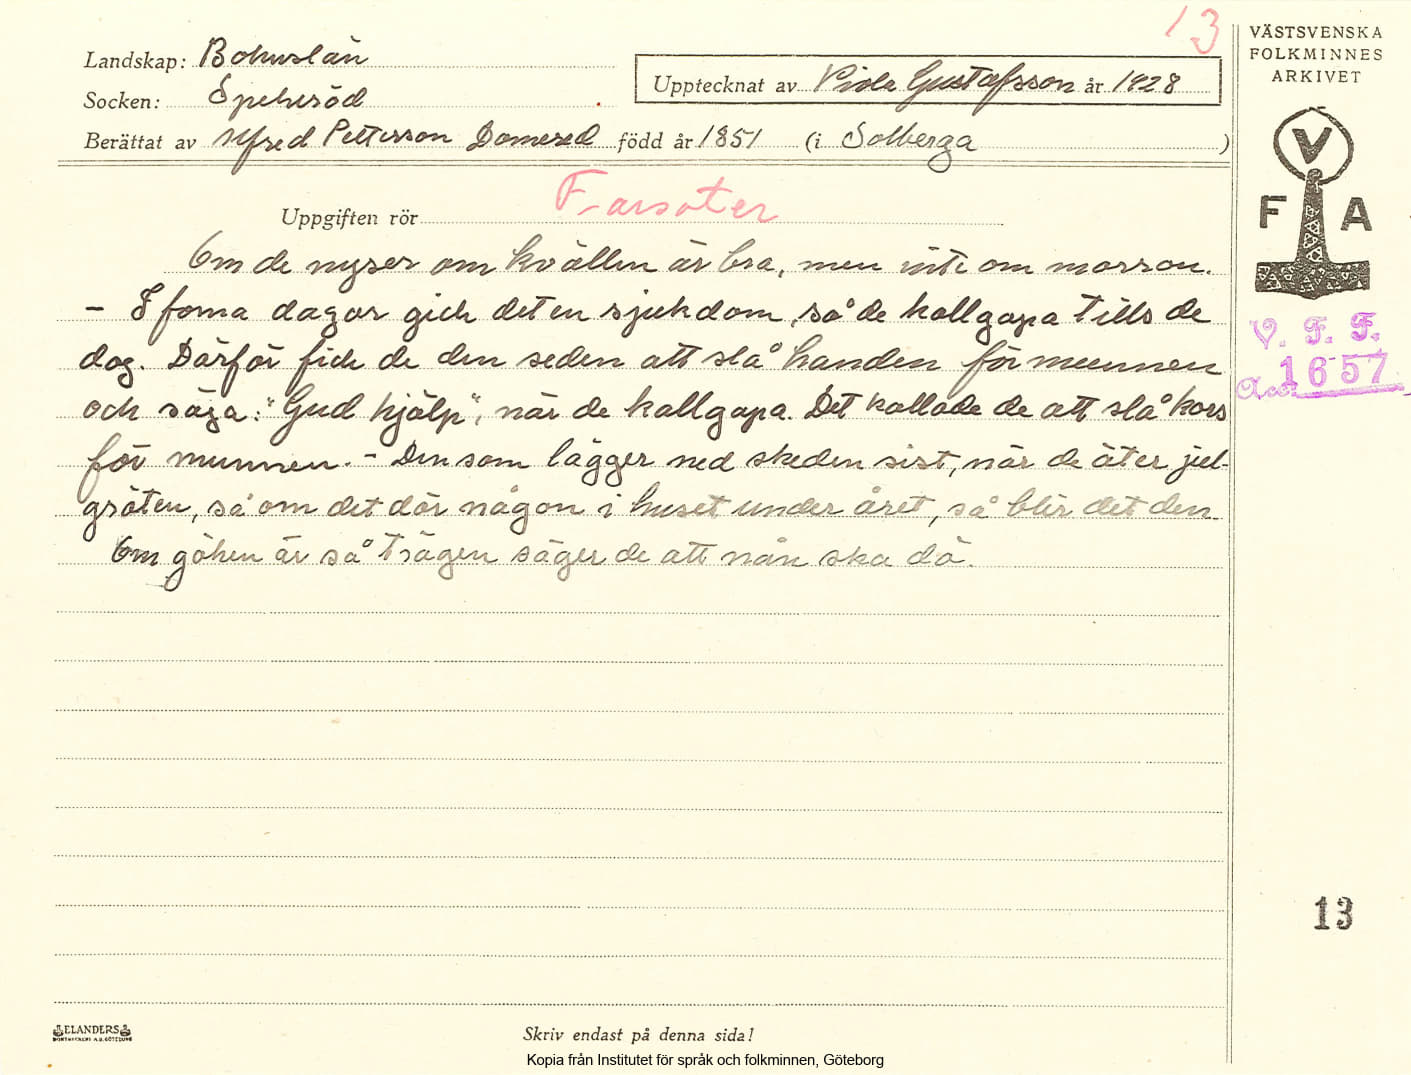 13
Landskap: Bohuslän
Socken: Spekeröd
Upptecknat av Viola Gustafsson år 1928
Berättat av Alfred Pettersson Domered född år 1851 (i Solberga )
Uppgiften rör Farsoter
Om de nyser om kvällen är bra, men inte om morron.
- I forna dagar gick det en sjukdom, så de kallgapa tills de
dog. Därför fick de den seden att slå handen för munnen
och säga: "Gud hjälp", när de kallgapa. Det kallade de att slå kors
för munnen. - Den som lägger ned skeden sist, när de äter jul-
gröten, så om det dör någon i huset under året, så blir det den.
Om göken är så trägen säger de att nån ska dö.
VÄSTSVENSKA
FOLKMINNES
ARKIVET
V
F A
V. F. F.
Acc. 1657
13
ELANDERS
BOKTRYCKERI A.B. GÖTEBORG
Skriv endast på denna sida!
Kopia från Institutet för språk och folkminnen, Göteborg